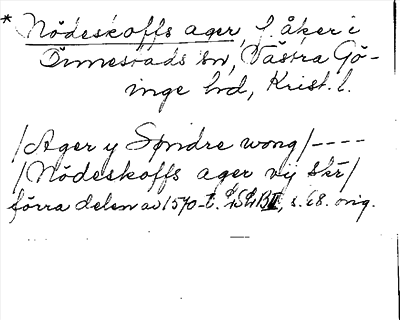 * Nödeskoffs ager, f. åker i
Önnestads sn, Västra Gö-
inge hd, Krist. l.
/Ager y Søndre wong/----
/Nödeskoffs ager vij skr/
förra delen av 1570-t. s. 68. orig.